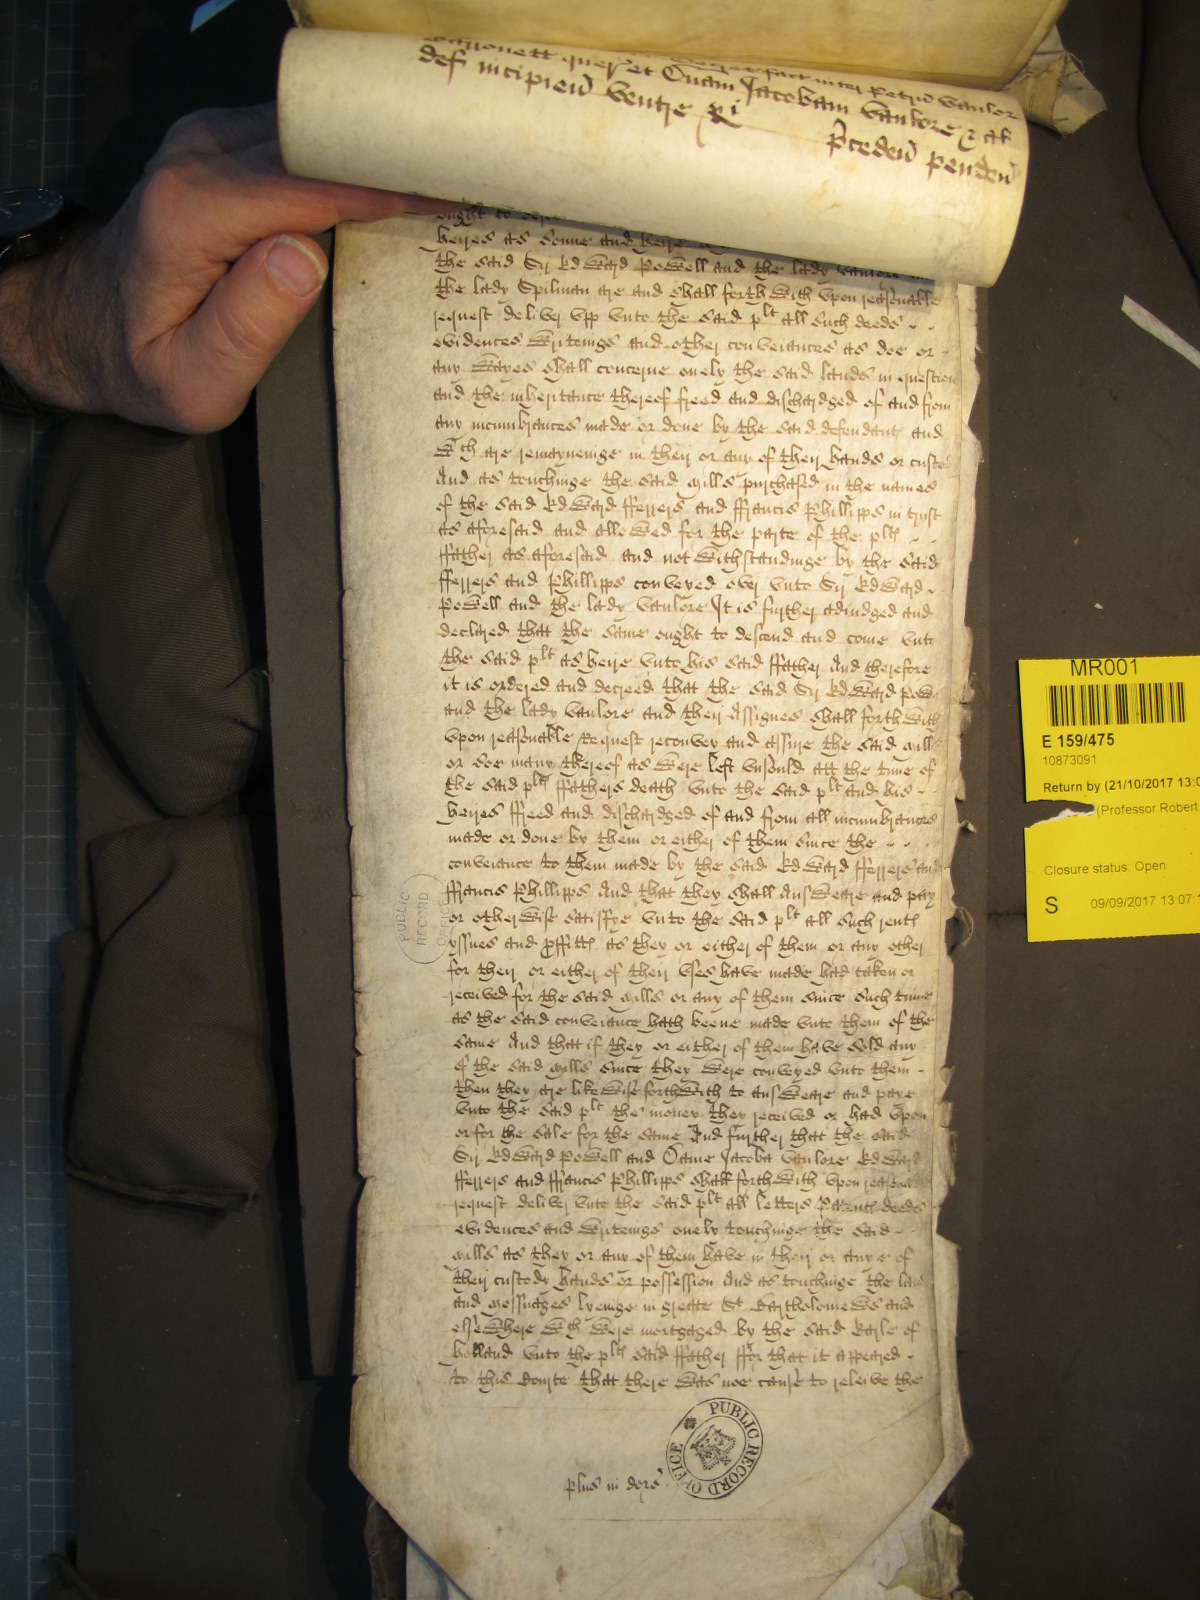 quer et Dnam Jacobam Vanlore &
def incipien
p̱ceden penden
ought to
heires as sonne and heire
the said Sir Edward Powell and the lady Vanlore
the lady Spilman are and shall forthwith upon reasonable
request deliver upp unto the said plt all such deeds
evidences writeings and other conveiances as doe or
any wayes shall concerne onely the said lands in question
and the inheritance thereof freed and dischardged of and from
any incumbrances made or done by the said defendants and
wch are remayneinge in their or any of their hands or custo
And as touchinge the said mills purchased in the names
of the said Edward fferrers and ffrancis Phillipps in trust
as aforesaid and allowed for the parte of the plts
ffather as aforesaid and notwithstandinge by the said
fferrers and Phillipps conveyed over unto Sir Edward
Powell and the lady Vanlore It is further adiudged and
declared that the same ought to descend and come unto
the said plt as heire unto his said ffather And therefore
it is ordered and decreed that the said Sir Edward Pow
and the lady Vanlore and their Assignes shall forthwith
upon reasonable request reconvey and assure the said mills
or soe many thereof as were left unsould att the time of
the said plts ffathers death unto the said plt and his
heires ffreed and dischardged of and from all incumbrances
made or done by them or either of them since the
conveiance to them made by the said Edward fferrers and
ffrancis Phillipps And that they shall answeare and pay
or otherwise satisfye unto the said plt all such rents
yssues and proffitts as they or either of them or any other
for their or either of their uses have made had taken or
received for the said mills or any of them since such time
as the said conveiance hath beene made unto them of the
same And that if they or either of them have sold any
of the said mills since they were conveyed unto them
then they are likewise forthwith to answeare and paye
unto the said plt the money they received or had upon
or for the sale for the same And further that the said
Sir Edward Powell and Dame Jacoba Vanlore Edward
fferrers and ffrancis Phillipps shall forthwith upon reasona
request deliver unto the said plt all letters Patents deeds
evidences and writeings onely touchinge the said
mills as they or any of them have in their or anye of
their custody hands or possession And as touchinge the land
and messuages lyeinge in greate St Bartholomews and
elsewhere wch were mortgaged by the said Earle of
holland unto the plts said ffather ffor that it appeared
to this Courte that there was noe cause to releive the
plus in dors
PUBLIC RECORD OFFICE
PUBLIC
RECORD
OFFICE
MR001
E 159/475
10873091
Return by (21/10/2017 13:0
(Professor Robert
Closure status: Open
S
09/09/2017 13:07: